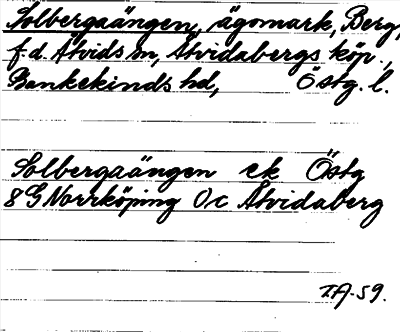 Solbergaängen, ägomark, Berg,
f.d. Åtvids sn, Åtvidabergs köp.,
Bankekinds hd, Östg. l.
Solbergaängen ek Östg
8 G Norrköping Oc Åtvidaberg
T.A. 59.